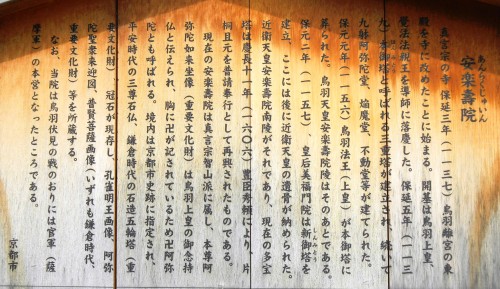 あんらくじゅいん
安楽壽院
真言宗の寺。保延三年（一一三七）鳥羽離宮の東
殿を寺に改めたことに始まる。開基は鳥羽上皇、
覺法法親王を導師に落慶した。保延五年（一一三
九）本御塔と呼ばれる三重塔が建立され、続いて
九躰阿弥陀堂、焔魔堂、不動堂等が建てられた。
保元元年（一一五六）鳥羽法王（上皇）が本御塔に
葬られた。鳥羽天皇安楽壽院陵はそのあとである。
保元二年（一一五七）、皇后美福門院は新御塔を
しんみとう
建立、ここには後に近衛天皇の遺骨が納められた。
近衛天皇安楽壽院南陵がそれであり、現在の多宝
塔は慶長十一年（一六〇六）豊臣秀頼により、片
桐且元を普請奉行として再興されたものである。
現在の安楽壽院は真言宗智山派に属し、本尊阿
弥陀如来坐像（重要文化財）は鳥羽上皇の御念持
仏と伝えられ、胸に卍が記されているため卍阿弥
陀とも呼ばれる。境内は京都市史跡に指定され、
平安時代の三尊石仏、鎌倉時代の石造五輪塔（重
要文化財）、冠石が現存し、孔雀明王画像、阿弥
陀聖衆来迎図、普賢菩薩画像（いずれも鎌倉時代、
重要文化財）等を所蔵する。
なお、当院は鳥羽伏見の戦のおりには官軍（薩
摩軍）の本営となったところである。
京都市